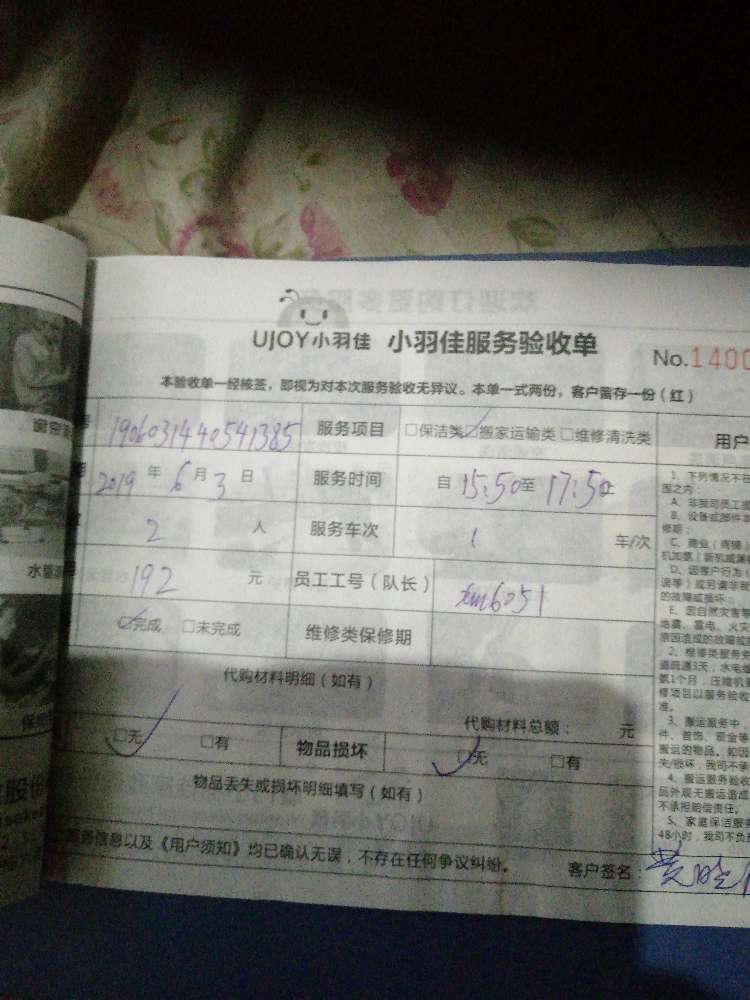 UJOY小羽佳 小羽佳服务验收单
No.1400
本验收单一经核签，即视为对本次服务验收无异议。本单一式两份，客户留存一份（红）
1906031440541385 服务项目 □保洁类 ☑搬家运输类 □维修清洗类
2019年6月3日 服务时间 自15:50至17:50止
2 人 服务车次 1 车/次
192 元 员工工号（队长） xm6051
☑完成 □未完成 维修类保修期
代购材料明细（如有）
代购材料总额： 元
☑无 □有 物品损坏 ☑无 □有
物品丢失或损坏明细填写（如有）
服务信息以及《用户须知》均已确认无误，不存在任何争议纠纷。 客户签名：
用户
1、下列情况不在
围之内：
A、非我司员工
B、设备或部件
修期；
C、商业（商铺）
D、因客户行为
的故障或损坏
E、因自然灾害
地震、雷电、火灾
原因造成的故障或
道疏通3天；水电
氨1个月，压缩机
修项目以服务验收
准。
3、搬运服务中，
件、首饰、现金等
搬运的物品。如因
失/损坏，我司不承
4、搬运服务验收
品外观无搬运造成
不承担赔偿责任。
5、家庭保洁服务
48小时，我司不负
水管
股份